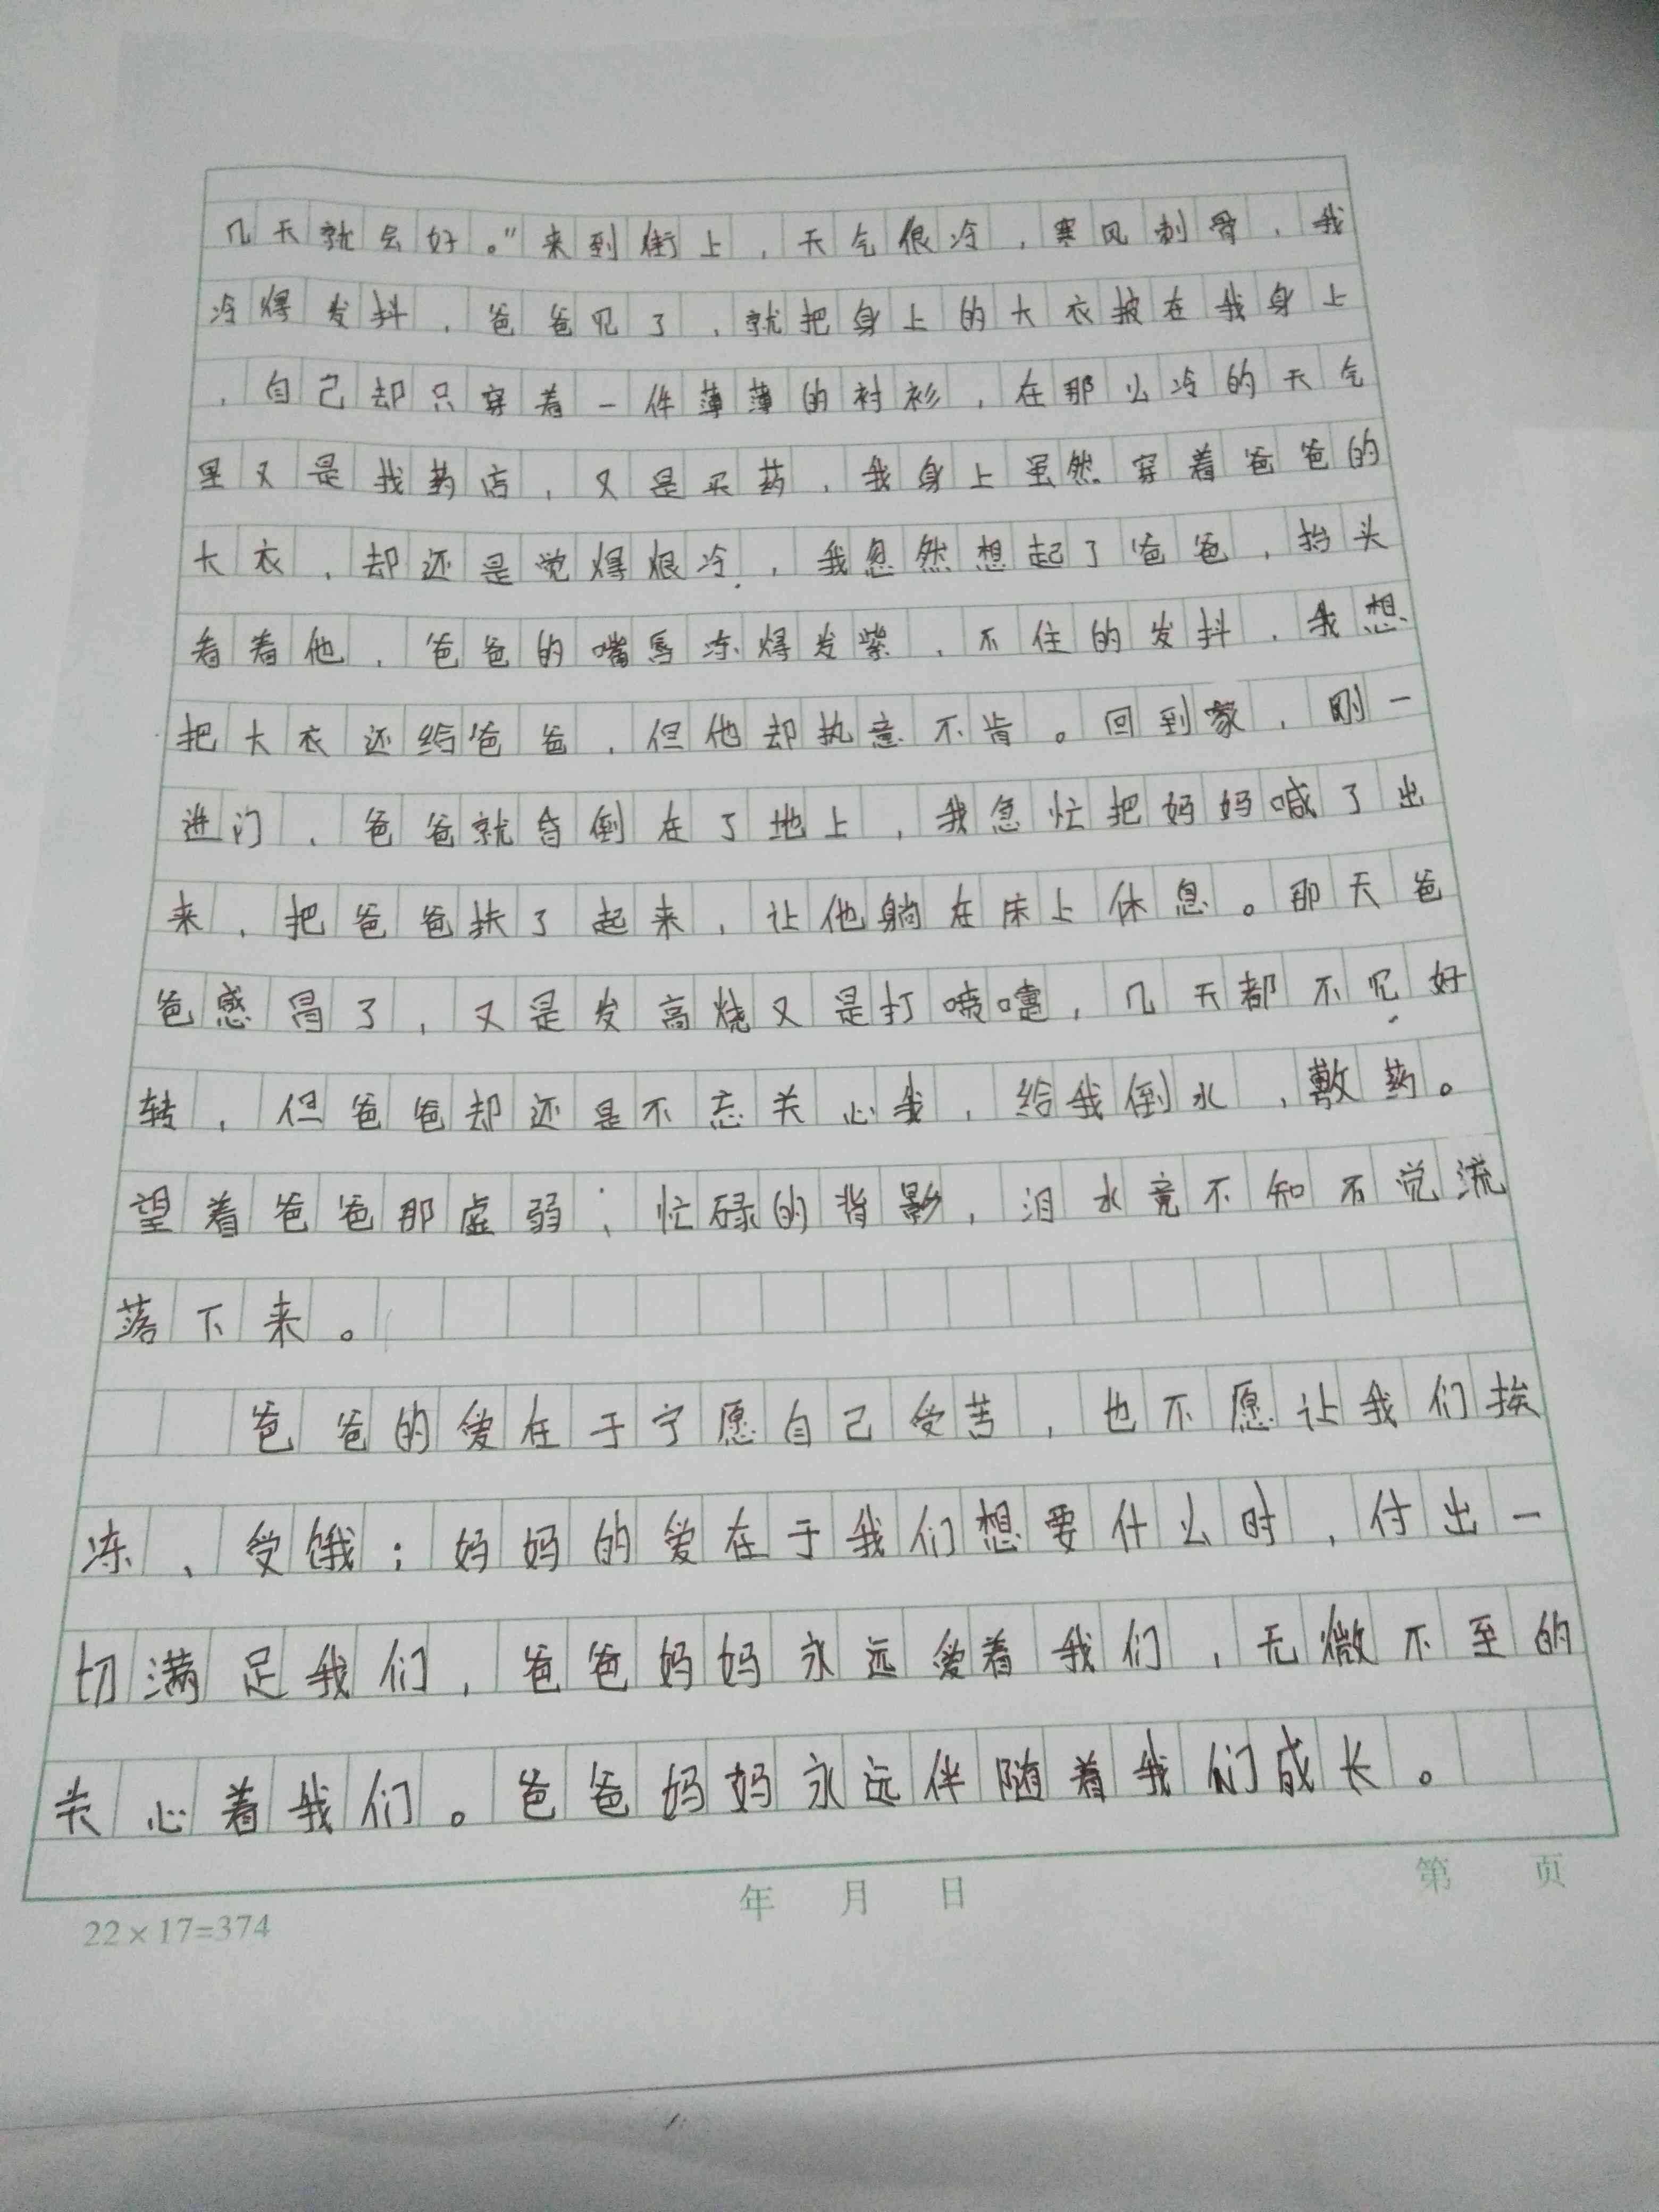 几天就会好。”来到街上，天气很冷，寒风刺骨，我
冷得发抖，爸爸见了，就把身上的大衣披在我身上
，自己却只穿着一件薄薄的衬衫，在那么冷的天气
里又是找药店，又是买药，我身上虽然穿着爸爸的
大衣，却还是觉得很冷，我忽然想起了爸爸，抬头
看着他，爸爸的嘴唇冻得发紫，不住的发抖，我想
把大衣还给爸爸，但他却执意不肯。回到家，刚一
进门，爸爸就昏倒在了地上，我急忙把妈妈喊了出
来，把爸爸扶了起来，让他躺在床上休息。那天爸
爸感冒了，又是发高烧又是打喷嚏，几天都不见好
转，但爸爸却还是不忘关心我，给我倒水，敷药。
望着爸爸那虚弱；忙碌的背影，泪水竟不知不觉流
落下来。
爸爸的爱在于宁愿自己受苦，也不愿让我们挨
冻、受饿；妈妈的爱在于我们想要什么时，付出一
切满足我们，爸爸妈妈永远爱着我们，无微不至的
关心着我们。爸爸妈妈永远伴随着我们成长。
年 月 日 第 页
22×17=374